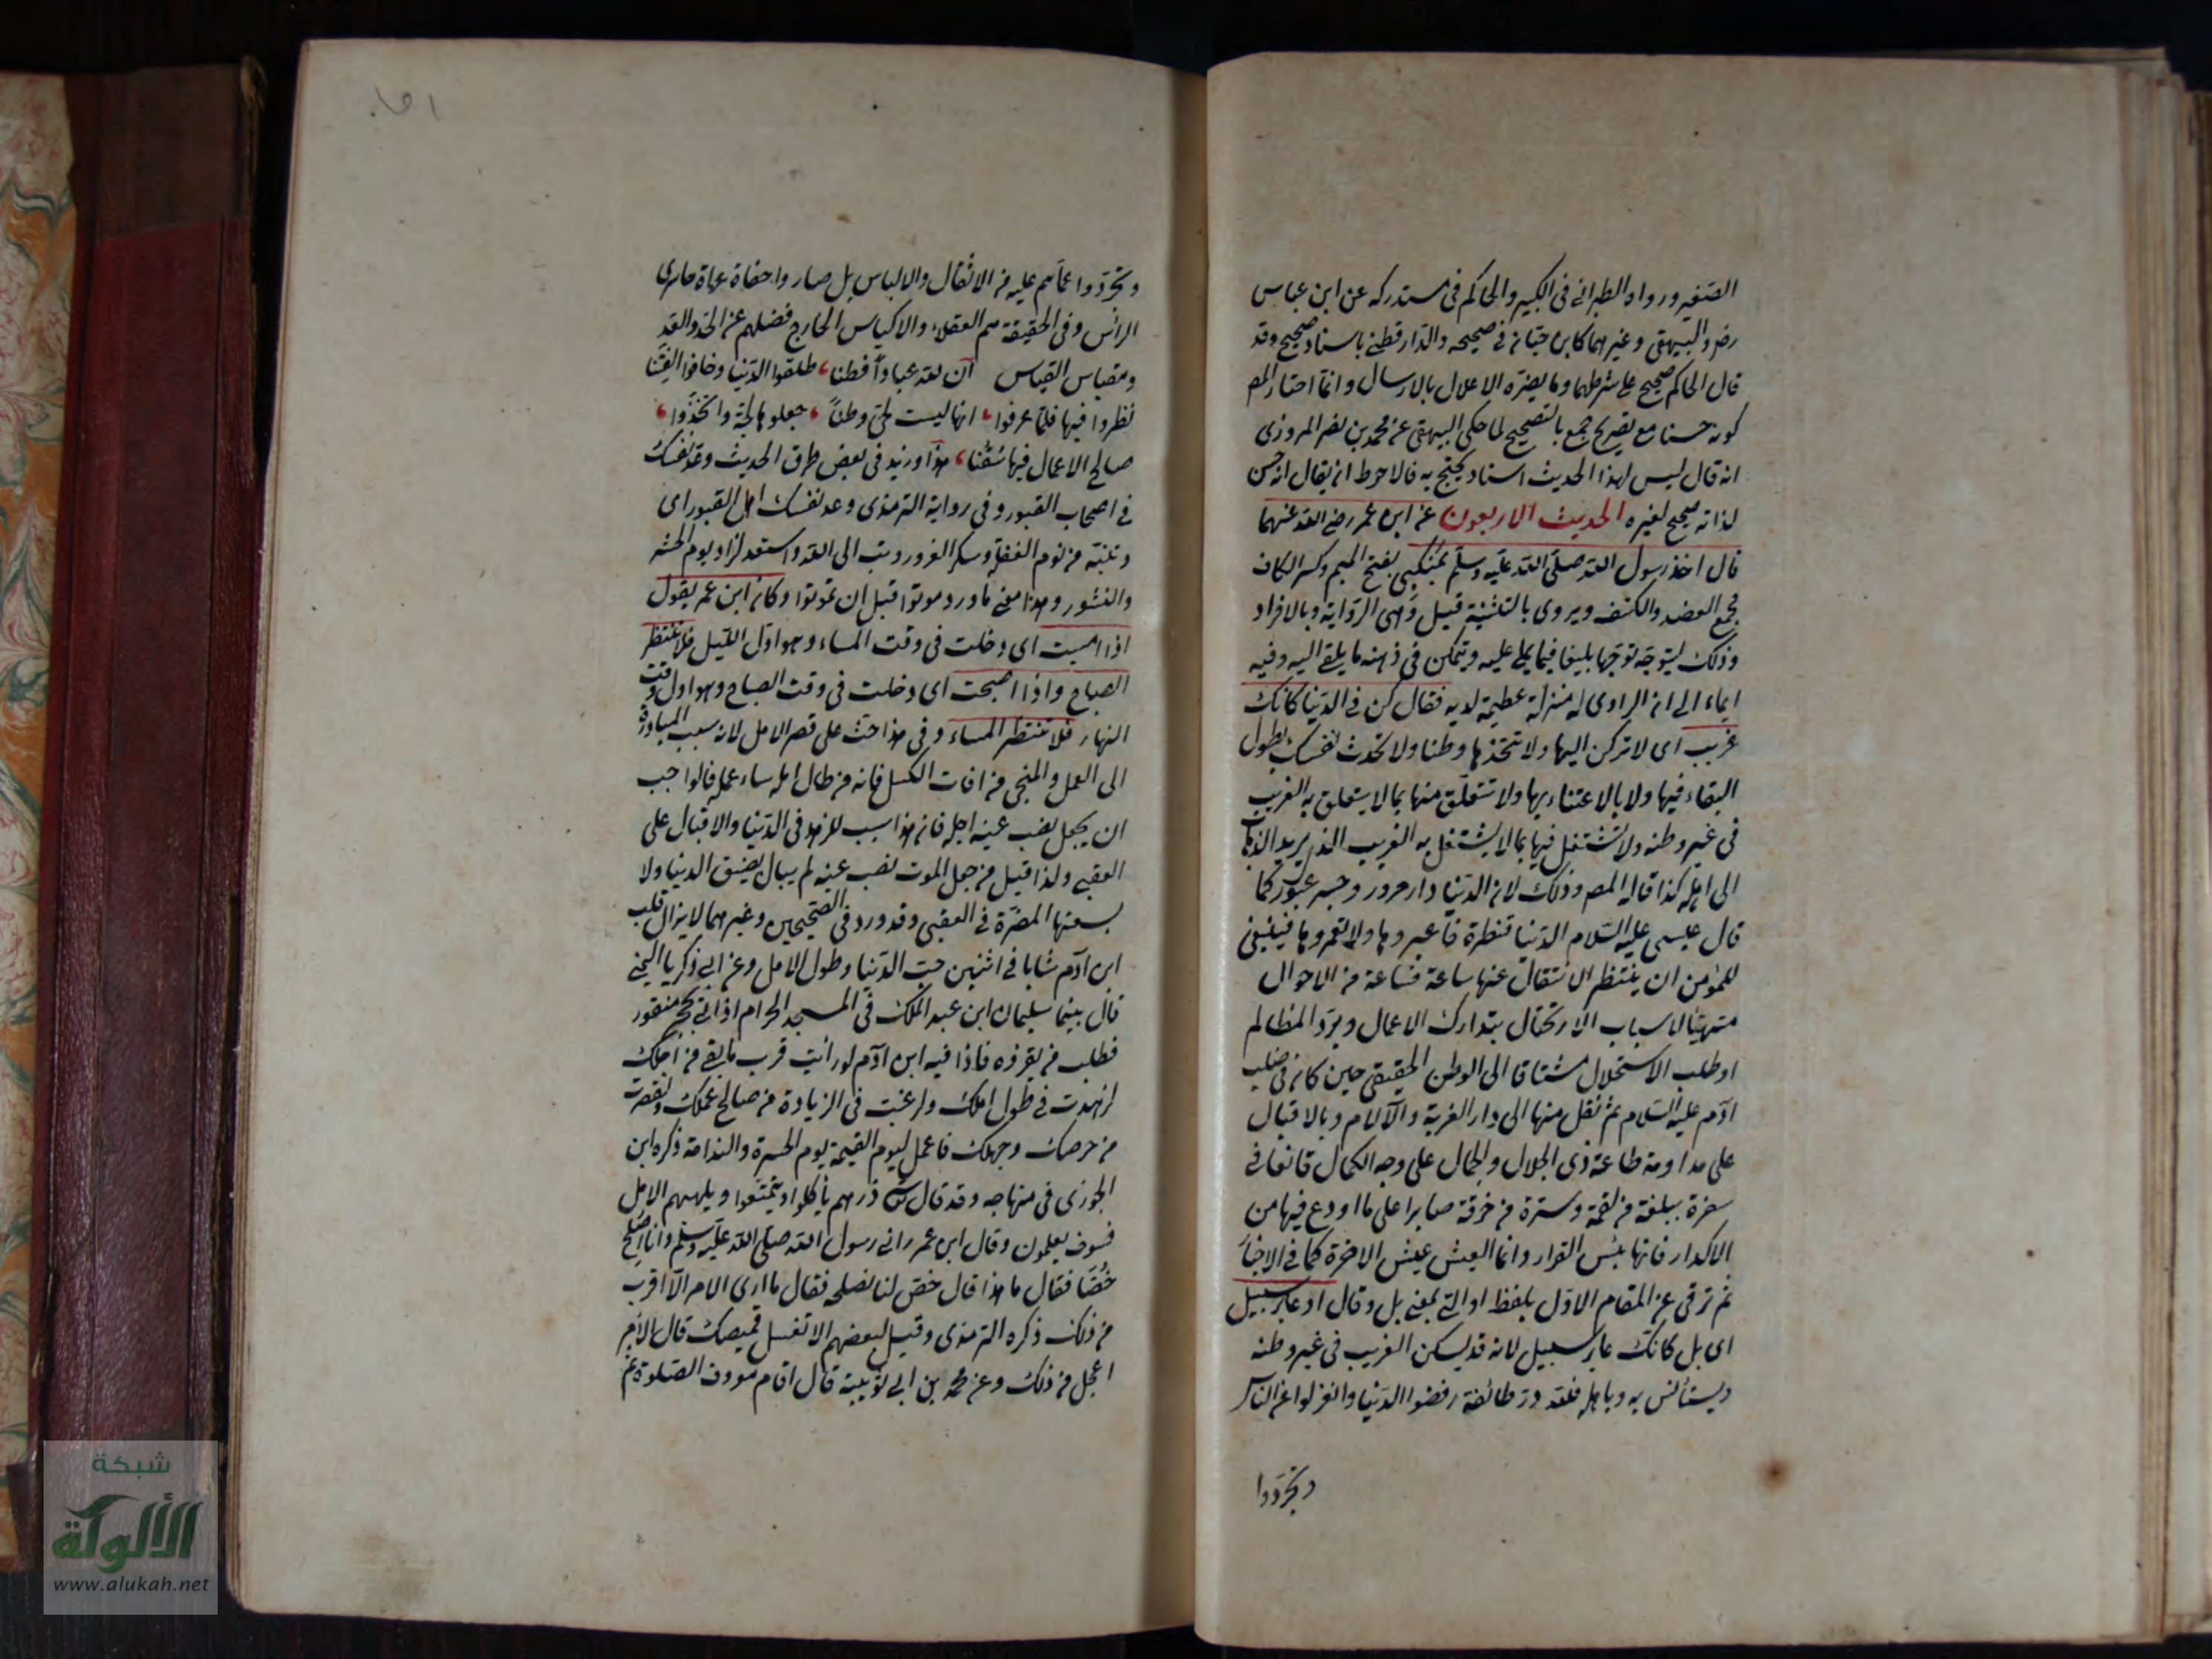 الصغير ورواه الطبرانى فى الكبير والحاكم فى مستدركه عن ابن عباس
رضى والبيهقى وغيرهما كابن حبان فى صحيحه والدارقطنى باسناد صحيح وقد
قال الحاكم صحيح على شرطهما وما يضره الاعلال بالارسال وانما اختار المص
كونه حسنا مع تصريح جمع بالتصحيح لما حكى البيهقى عن محمد بن نصر المروزى
انه قال ليس لهذا الحديث اسناد يحتج به فالاحوط ان يقال انه حسن
لذاته صحيح لغيره الحديث الاربعون عن ابن عمر رضى الله عنهما
قال اخذ رسول الله صلى الله عليه وسلم بمنكبى بفتح الميم وكسر الكاف
مجمع العضد والكتف ويروى بالتثنية قيل وهى الرواية وبالافراد
وذلك ليتوجه توجها بليغا فيما يملى عليه ويتمكن فى ذهنه ما يلقى اليه وفيه
ايماء الى ان الراوى له منزلة عظيمة لديه فقال كن فى الدنيا كانك
غريب اى لا تركن اليها ولا تتخذها وطنا ولا تحدث نفسك بطول
البقاء فيها ولا بالاعتناء بها ولا تتعلق منها بما لا يتعلق به الغريب
فى غير وطنه ولا تشتغل فيها بما لا يشتغل به الغريب الذى يريد الذهاب
الى اهله كذا قاله المص وذلك لان الدنيا دار مرور وجسر عبور كما
قال عيسى عليه السلام الدنيا قنطرة فاعبروها ولا تعمروها فينبغى
للمؤمن ان ينتظر الانتقال عنها ساعة فساعة من الاحوال
متهيئا لاسباب الارتحال بتدارك الاعمال وبرد المظالم
او طلب الاستحلال مشتاقا الى الوطن الحقيقى حين كان فى صلب
ادم عليه السلام ثم نقل منها الى دار الغربة والآلام وبالاقبال
على مداومة طاعة ذى الجلال والجمال على وجه الكمال قانعا فى
سفره ببلغة من لقمة وسترة من خرقة صابرا على ما اودع فيها من
الاكدار فانها بئس القرار وانما العيش عيش الاخرة كما فى الاخبار
ثم ترقى عن المقام الاول بلفظ او التى بمعنى بل وقال او عابر سبيل
اى بل كانك عابر سبيل لانه قد يسكن الغريب فى غير وطنه
ويستأنس به وباهله فلله در طائفة رفضوا الدنيا وانعزلوا عن الناس
وتجردوا
وتجردوا عما هم عليه من الاثقال والالباس بل صاروا حفاة عراة حاسرى
الرأس وفى الحقيقة هم العقلاء والاكياس الخارج فضلهم عن الحد والقدر
ومقياس القياس ان لله عبادا فطنا، طلقوا الدنيا وخافوا الفتنا
نظروا فيها فلما عرفوا، انها ليست لحى وطنا، جعلوها لجة واتخذوا،
صالح الاعمال فيها سفنا، هذا وزيد فى بعض طرق الحديث وعد نفسك
فى اصحاب القبور وفى رواية الترمذى وعد نفسك من اهل القبور اى
وتنبه من نوم الغفلة وسكر الغرور وتب الى الله واستعد لزاد يوم الحشر
والنشور وهذا معنى ما ورد موتوا قبل ان تموتوا وكان ابن عمر يقول
اذا امسيت اى دخلت فى وقت المساء وهو اول الليل فلا تنتظر
الصباح واذا اصبحت اى دخلت فى وقت الصباح وهو اول وقت
النهار فلا تنتظر المساء وفى هذا حث على قصر الامل لانه سبب المبادرة
الى العمل والمنجى من افات الكسل فانه من طال امله ساء عمله فالواجب
ان يجعل نصب عينه اجله فان هذا سبب للزهد فى الدنيا والاقبال على
العقبى ولذا قيل من جعل الموت نصب عينه لم يبال بضيق الدنيا ولا
بسعتها المضرة فى العقبى وقد ورد فى الصحيحين وغيرهما لا يزال قلب
ابن آدم شابا فى اثنين حب الدنيا وطول الامل وعن ابى زكريا التيمى
قال بينما سليمان ابن عبد الملك فى المسجد الحرام اذ اتى بحجر منقور
فطلب من يقرؤه فاذا فيه ابن آدم لو رأيت قرب ما بقى من اجلك
لزهدت فى طول املك ولرغبت فى الزيادة من صالح عملك ولقصرت
من حرصك وجهلك فاعمل ليوم القيمة يوم الحسرة والندامة ذكره ابن
الجوزى فى منهاجه وقد قال تعالى ذرهم يأكلوا ويتمتعوا ويلههم الامل
فسوف يعلمون وقال ابن عمر رانى رسول الله صلى الله عليه وسلم وانا اصلح
خصا فقال ما هذا قال خص لنا نصلحه فقال ما ارى الامر الا اقرب
من ذلك ذكره الترمذى وقيل لبعضهم الا تغسل قميصك قال الامر
اعجل من ذلك وعن محمد بن ابى توبة قال اقام معروف الصلوة ثم
شبكة
الألوكة
www.alukah.net